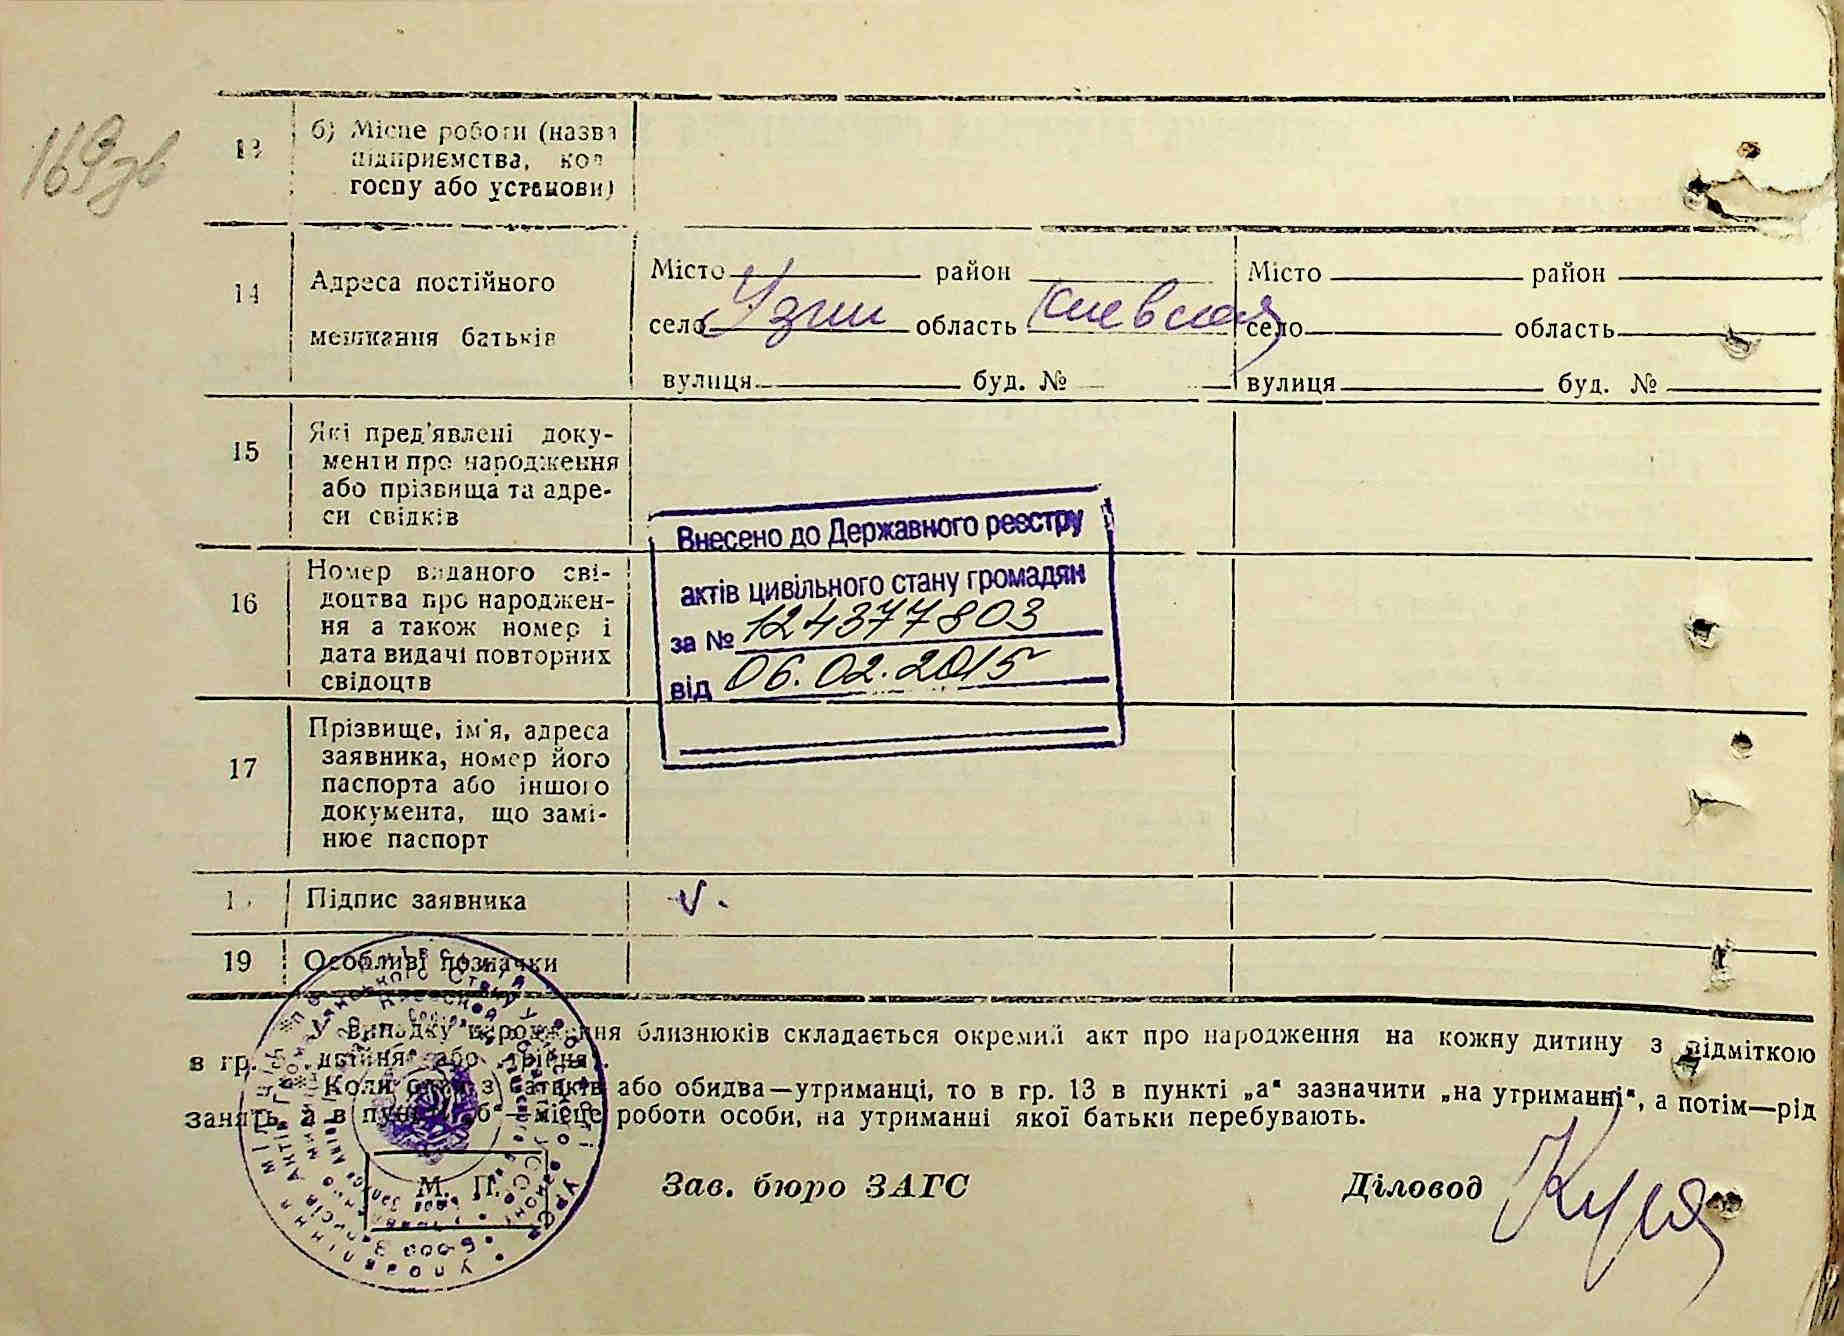 169зв
13 б) Місце роботи (назва
підприємства, кол
госпу або установи)
14 Адреса постійного
мешкання батьків
Місто район Місто район
село Узин область Киевская село область
вулиця буд. № вулиця буд. №
15 Які пред'явлені доку-
менти про народження
або прізвища та адре-
си свідків
16 Номер виданого сві-
доцтва про народжен-
ня а також номер і
дата видачі повторних
свідоцтв
Внесено до Державного реєстру
актів цивільного стану громадян
за № 124377803
від 06.02.2015
17 Прізвище, ім'я, адреса
заявника, номер його
паспорта або іншого
документа, що замі-
нює паспорт
Підпис заявника v.
19 Особливі позначки
Випадку народження близнюків складається окремий акт про народження на кожну дитину з відміткою
в гр. двійня або трійня.
Коли один з батьків або обидва—утриманці, то в гр. 13 в пункті „а“ зазначити „на утриманні“, а потім—рід
занять, а в пункті „б“—місце роботи особи, на утриманні якої батьки перебувають.
М. П. Зав. бюро ЗАГС Діловод